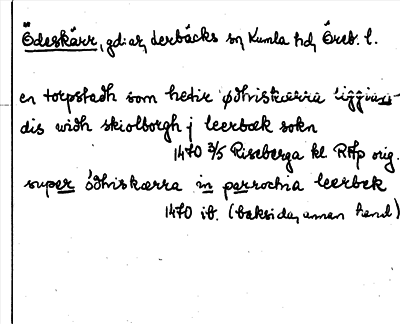 Ödeskärr, gdiar, Lerbäcks sn, Kumla hd, Öreb. l.
en torpstadh som hetir ødhriskærra liggiass-
dis widh skiolborgh j leerbæk sokn
1470 3/5 Riseberga kl RAp orig.
super ödhriskærra in parrochia leerbek
1470 ib. (baksidan, annan hand)